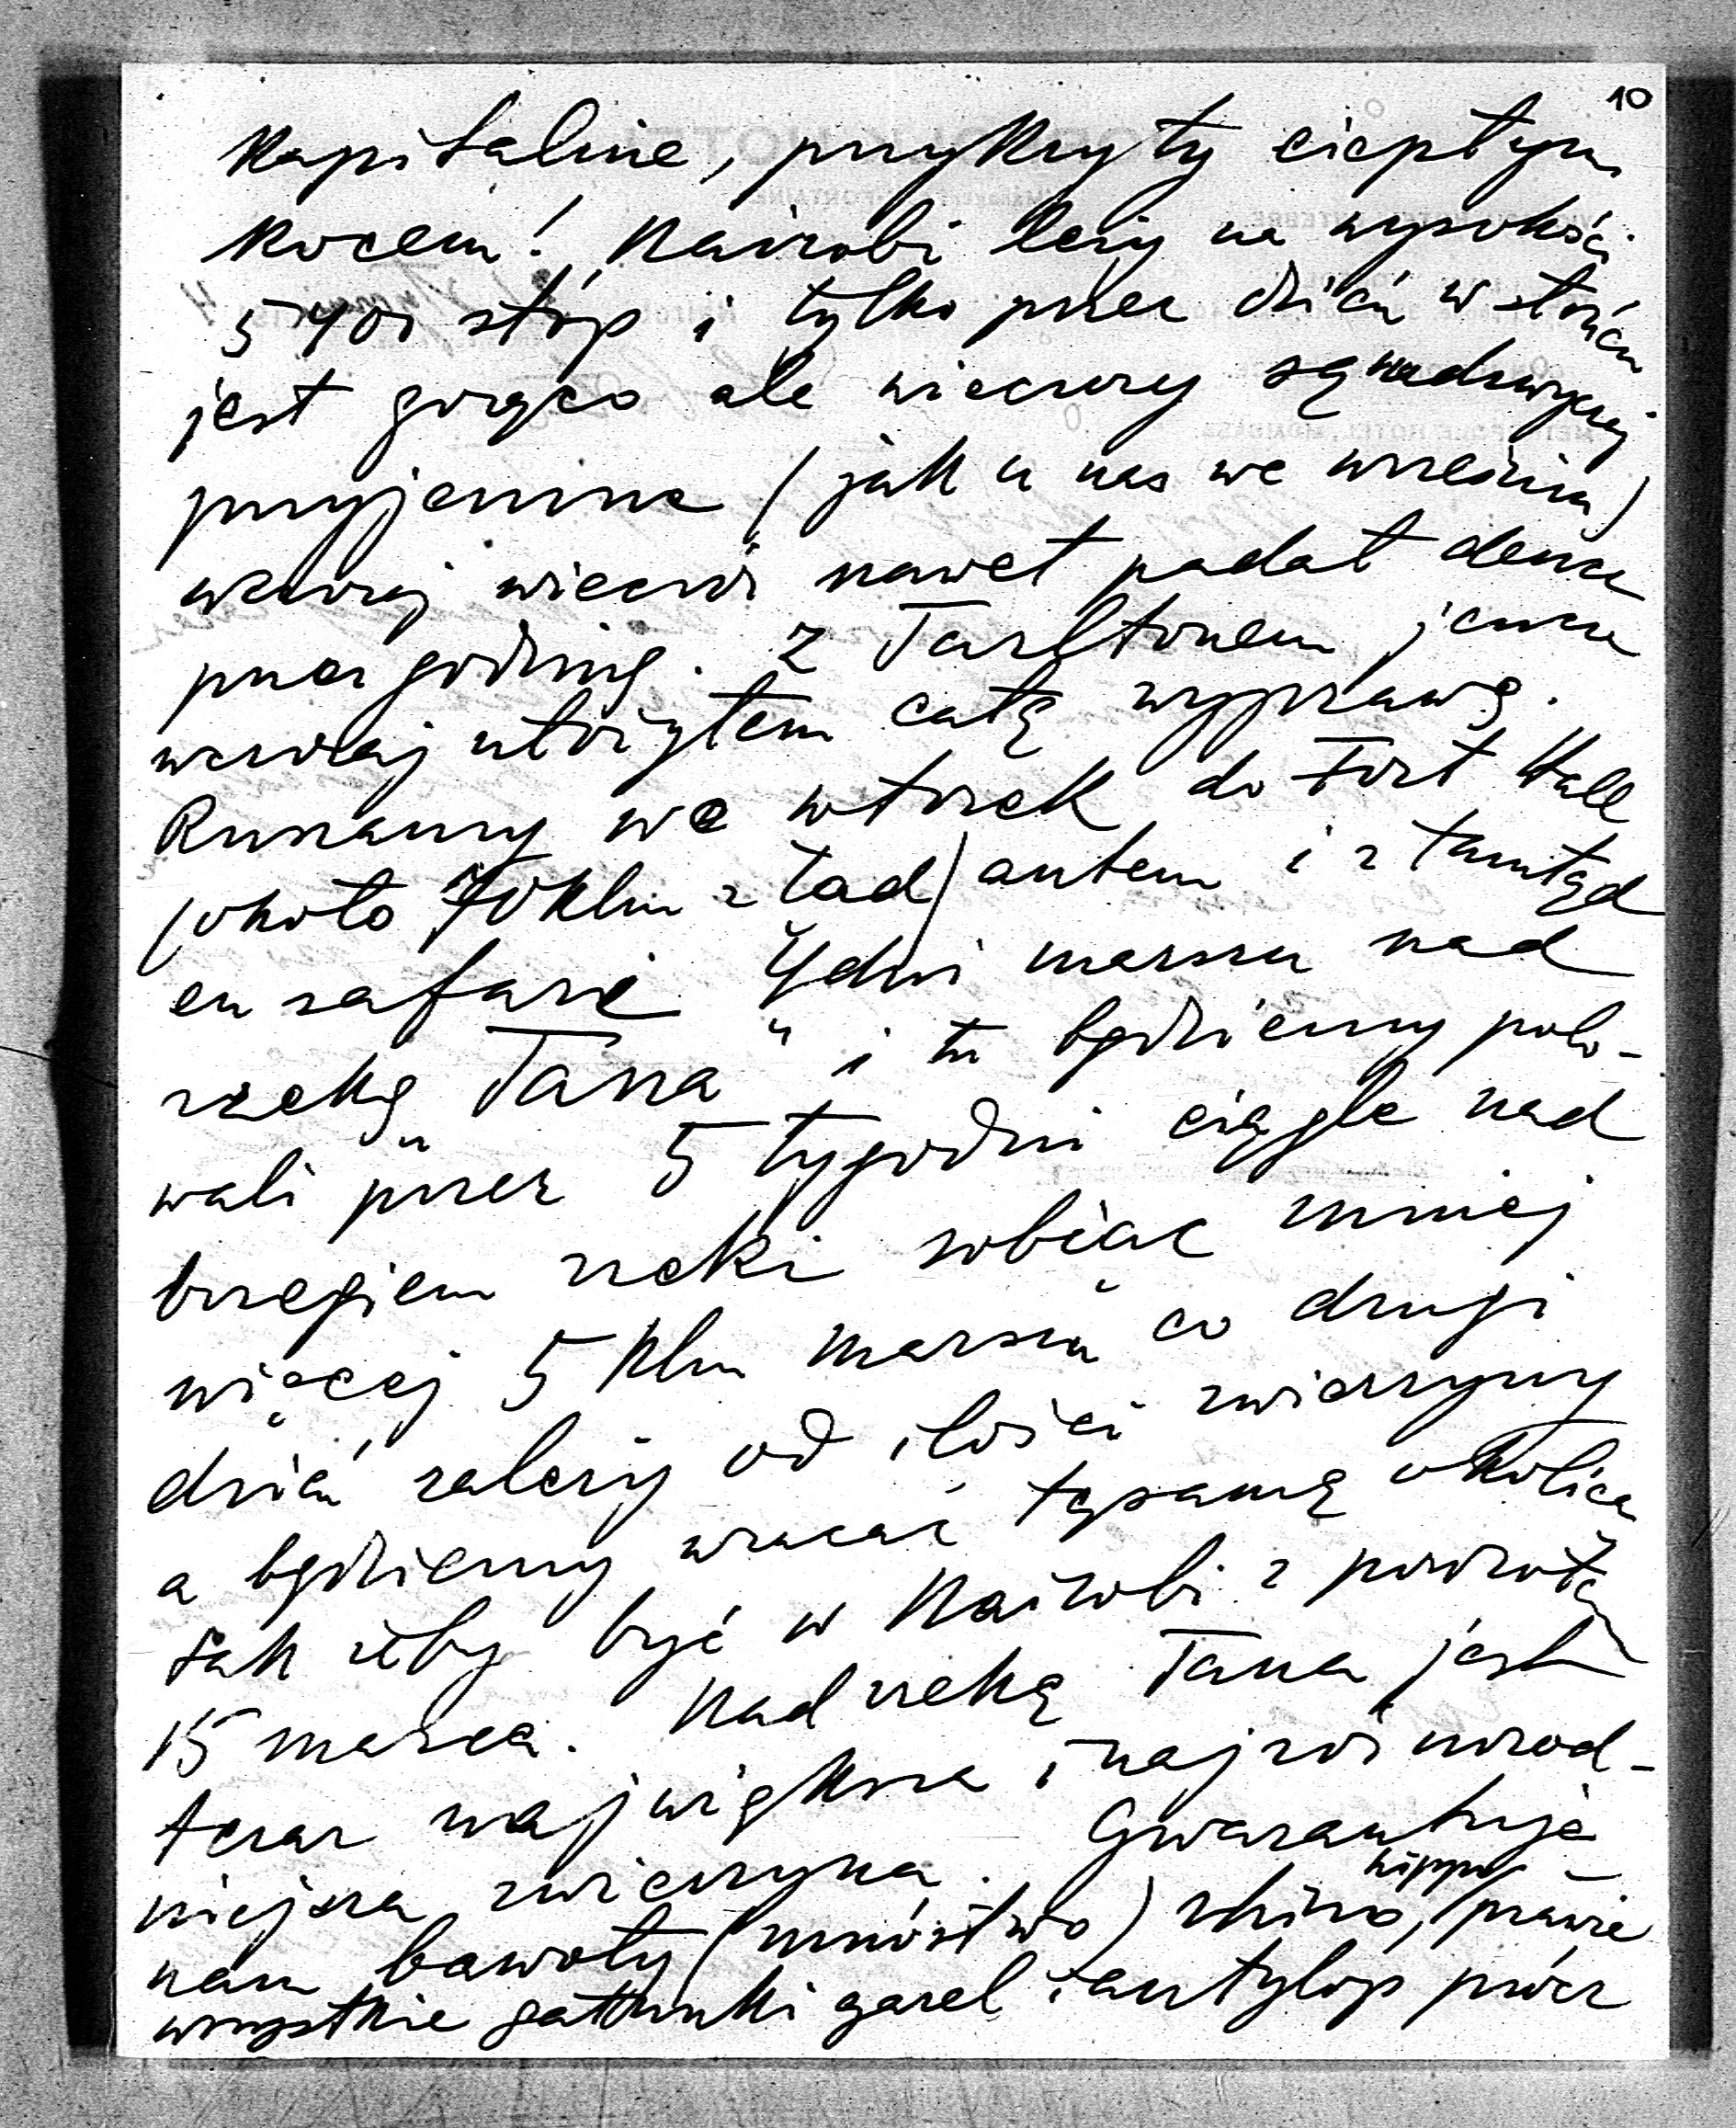 10
Kapitalnie, przykryty ciepłym
kocem! Nairobi leży na wysokości
5400 stóp i tylko przez dzień w słońcu
jest gorąco ale wieczory są nadzwyczaj
przyjemne (jak u nas we wrześniu)
wczoraj wieczór nawet padał deszcz
przez godzinę. Z Tarltonem jeszcze
wczoraj ułożyłem całą wyprawę.
Ruszamy we wtorek do Fort Hall
(około 70 klm z tąd) autem i z tamtąd
en safari 4 dni marszu nad
rzekę „Tana" i tu będziemy polo-
wali przez 5 tygodni ciągle nad
brzegiem rzeki robiąc mniej
więcej 5 klm marszu co drugi
dzień zależy od ilości zwierzyny
a będziemy wracać tęsamą okolicą
tak żeby być w Nairobi z powrotem
15 marca. Nad rzeką Tana jest
teraz największa i najróżnorod-
niejsza zwierzyna. Gwarantuje
nam bawoły (mnóstwo) rhino, hippo, prawie
wszystkie gatunki gazel i antylop prócz